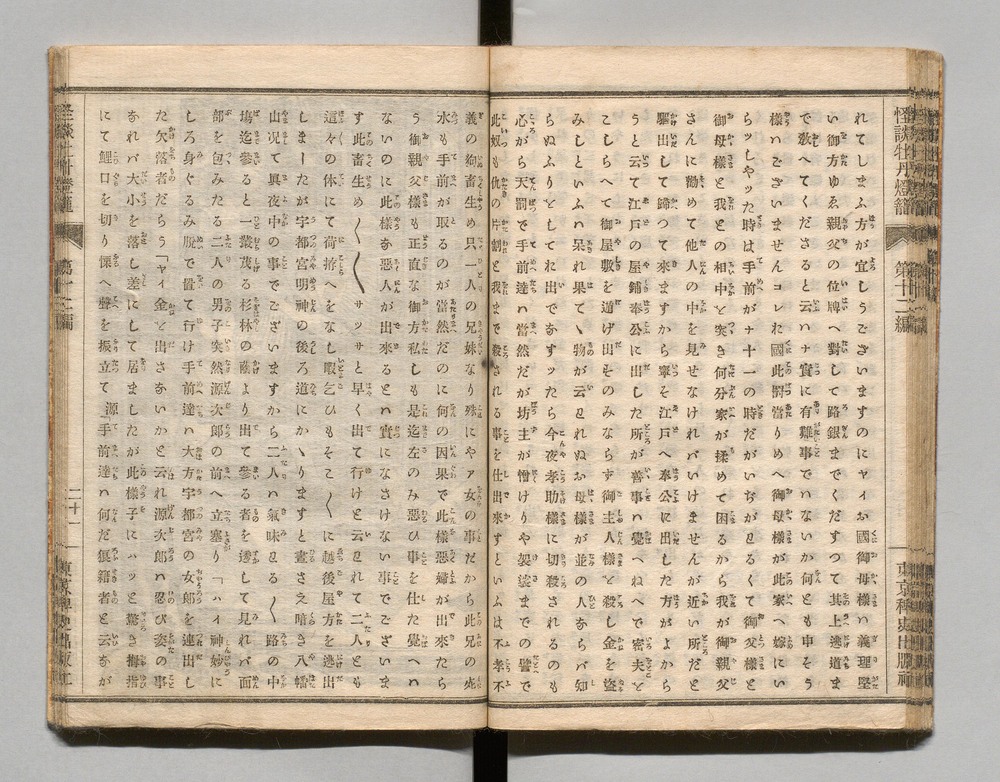 怪談牡丹燈籠 第十二編 東京稗史出版社
れてしまふ方が宜しうございますのにヤイお國御母様ハ義理堅
い御方ゆゑ親父の位牌へ對して路銀までくだすつて其上迯道ま
で教へてくださると云ハナ實に有難事でハないか何とも申そう
様ハございませんコレお國此罰當りめへ御母様が此家へ嫁にい
らツしやツた時は手前がナ十一の時だがいぢがわるくて御父様と
御母様と我との相中を突き何分家が揉めて困るから我が御親父
さんに勸めて他人の中を見せなければいけませんが近い所だと
駆出して歸つて來ますから寧そ江戸へ奉公に出した方がよから
うと云て江戸の屋鋪奉公に出した所が善事ハ覺へねへで密夫を
こしらへて御屋敷を逃げ出すのみならず御主人様を殺し金を盗
みしといふハ呆れ果てゝ物が云われぬお母様が並の人ならバ知
らぬふりをしてお出でなすツたら今夜孝助様に切殺されるのも
心がら天罰で手前達ハ當然だが坊主が憎けりや袈裟までの譬で
此奴も仇の片割と我まで殺される事を仕出來すといふは不孝不
義の狗畜生め只一人の兄妹なり殊にやア女の事だから此兄の死
水も手前が取るのが當然だのに何の因果で此様悪婦が出來たら
う御親父様も正直な御方私しも是迄左のみ惡ひ事を仕た覺へハ
ないのに此様な悪人が出來るとハ實になさけない事でございま
す此畜生め〱〱サッサと早く出て行けと云われて二人とも
這々の体にて荷拵へをなし暇乞ひもそこ〱に越後屋方を迯出
しましたが宇都宮明神の後ろ道にかゝりますと晝さえ暗き八幡
山况て眞夜中の事でございますから二人ハ氣味わる〱路の中
塲迄參ると一叢茂る杉林の蔭より出て參る者を透して見れバ面
部を包みたる二人の男子突然源次郎の前へ立塞り「ハイ神妙に
しろ身ぐるみ脱で置て行け手前達ハ大方宇都宮の女郎を連出し
た欠落者だらう「ヤイ金を出さないかと云われ源次郎ハ忍び姿の事
なれバ大小を落し差にして居ましたが此様子にハッと驚き拇指
にて鯉口を切り慄へ聲を振立て 源「手前達ハ何だ狼藉者と云なが
怪談牡丹燈籠 第十二編 二十一 東京稗史出版社